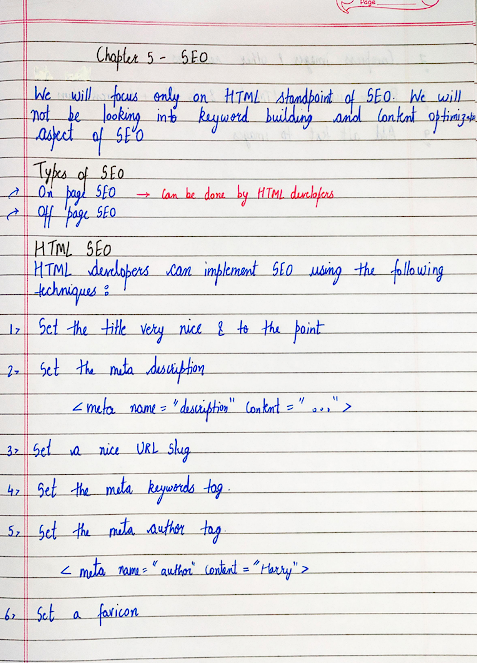 Page
Chapter 5 - SEO
We will focus only on HTML standpoint of SEO. We will
not be looking into keyword building and content optimizato
aspect of SEO
Types of SEO
→ On page SEO → Can be done by HTML developers
→ Off page SEO
HTML SEO
HTML developers can implement SEO using the following
techniques :
1> Set the title very nice & to the point
2> Set the meta description
< meta name = "description" content = " ... " >
3> Set a nice URL slug
4> Set the meta keywords tag.
5> Set the meta author tag.
< meta name = "author" content = "Harry" >
6> Set a favicon